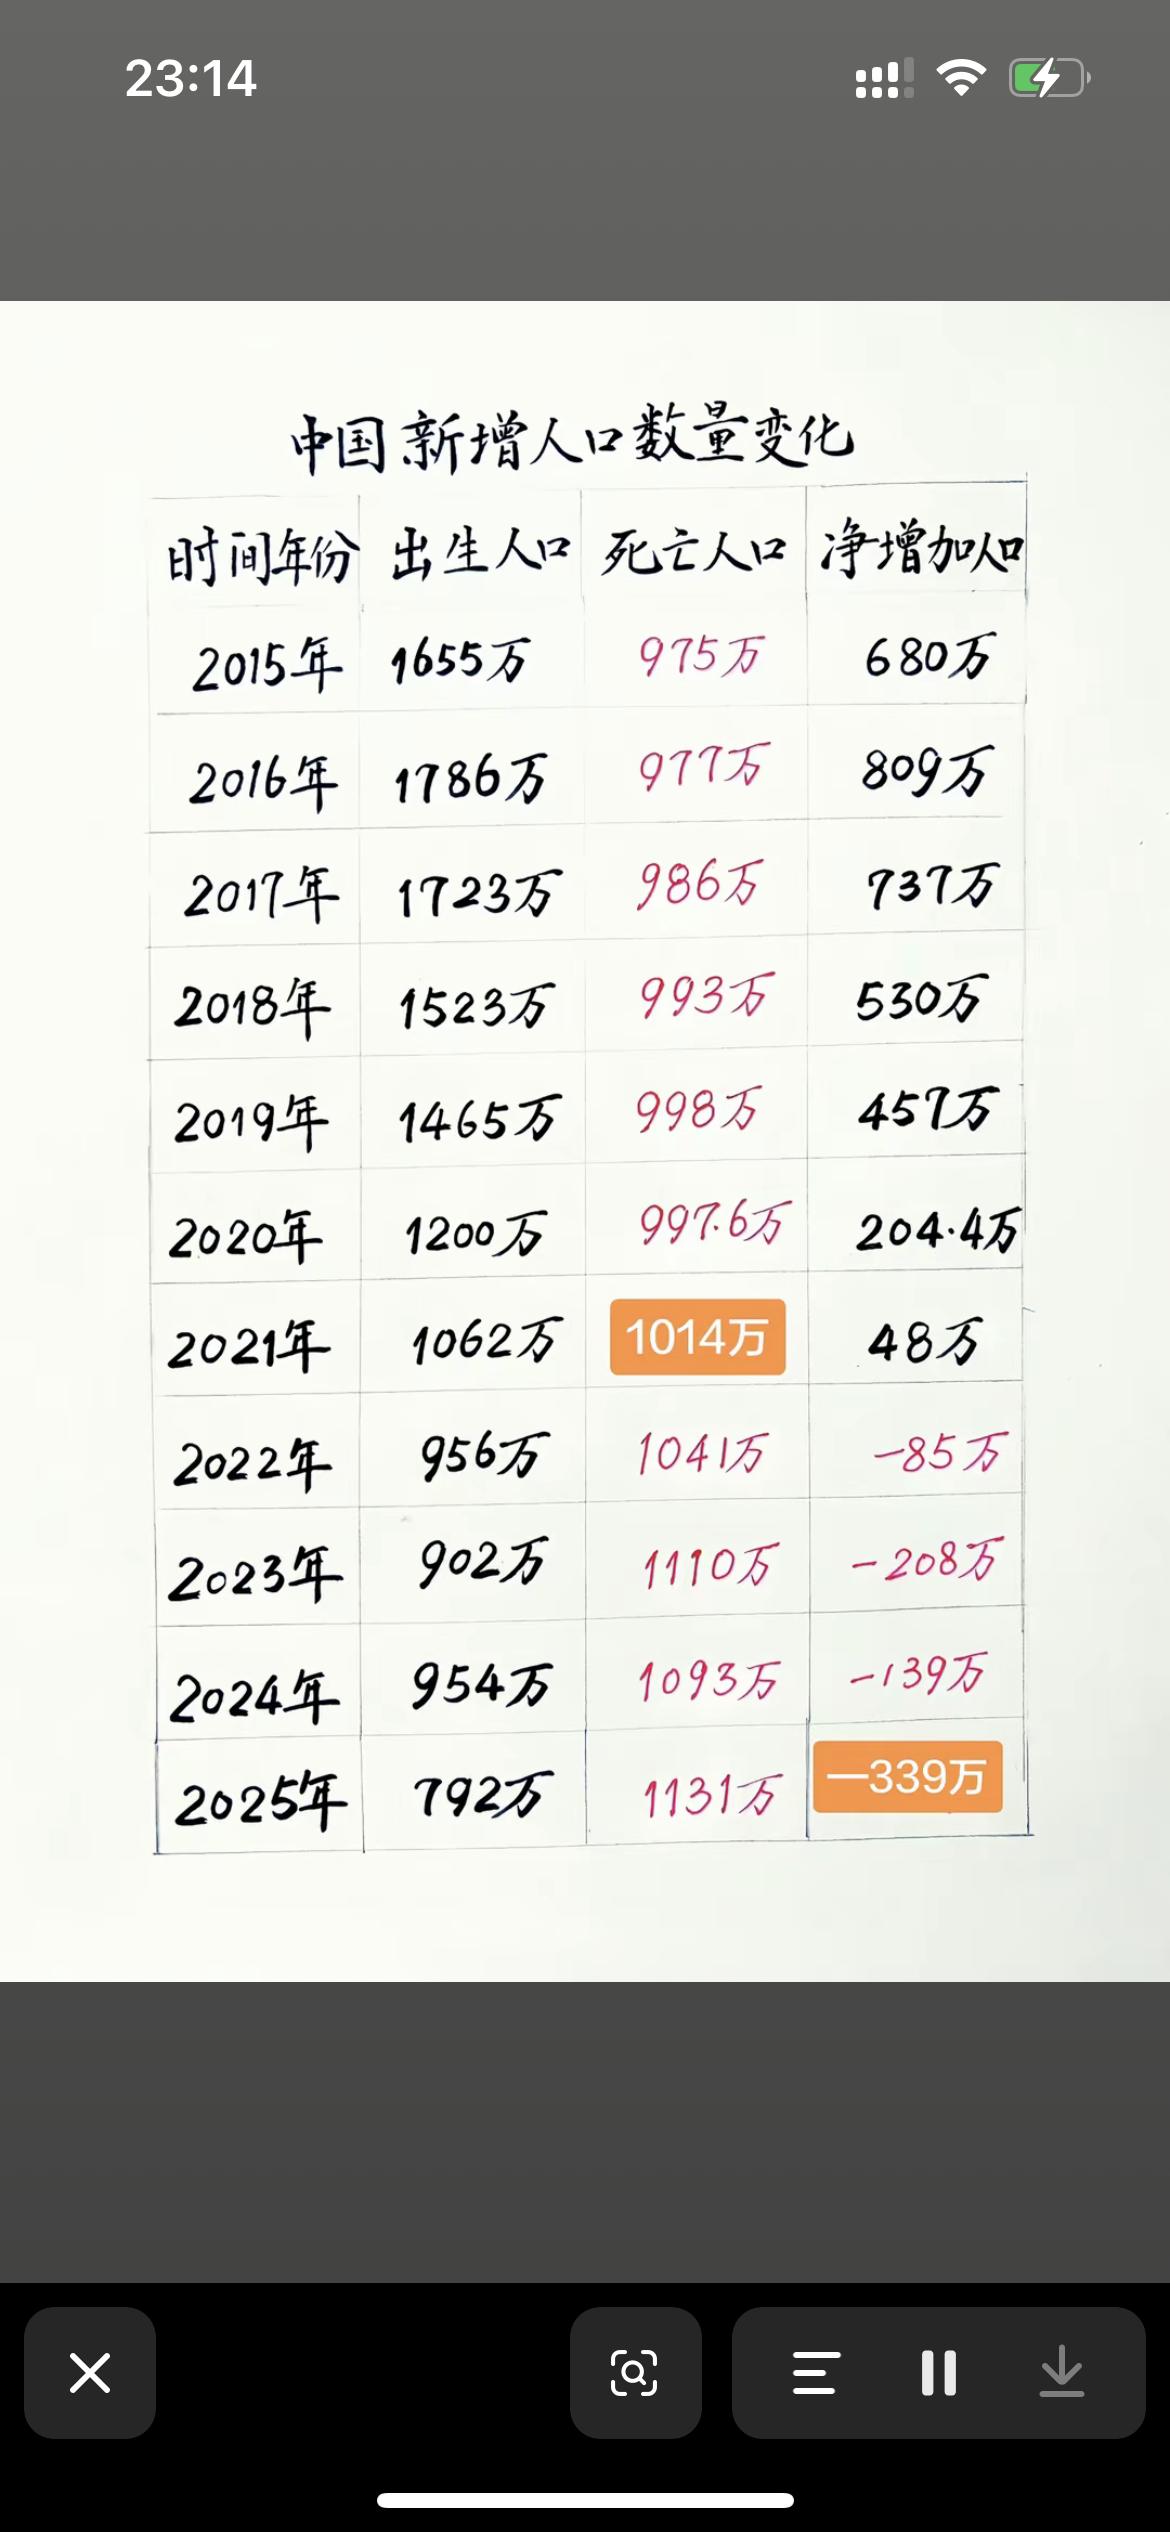 23:14
中国新增人口数量变化
时间年份 出生人口 死亡人口 净增加人口
2015年 1655万 975万 680万
2016年 1786万 977万 809万
2017年 1723万 986万 737万
2018年 1523万 993万 530万
2019年 1465万 998万 457万
2020年 1200万 997.6万 204.4万
2021年 1062万 1014万 48万
2022年 956万 1041万 -85万
2023年 902万 1110万 -208万
2024年 954万 1093万 -139万
2025年 792万 1131万 —339万